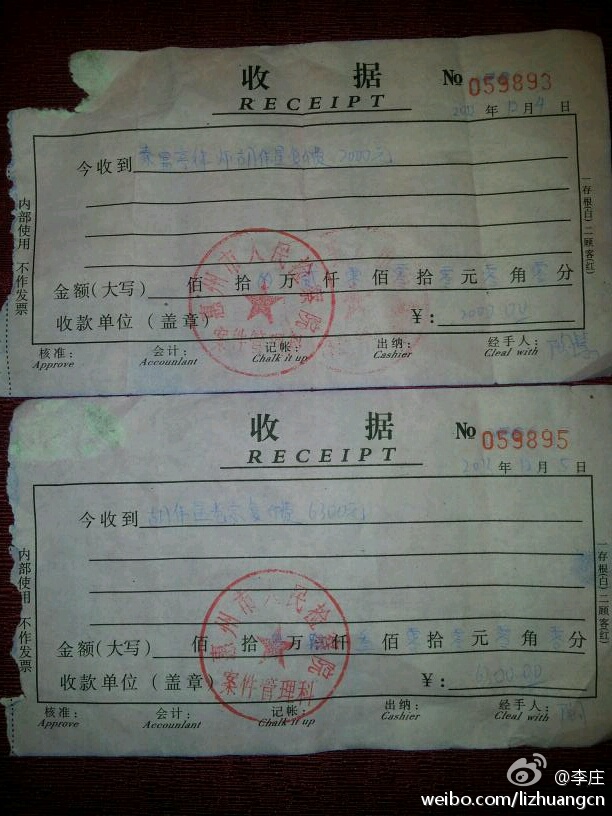 收 据
RECEIPT
№ 059893
年 12 月 4 日
今收到
2000元
金额(大写) 佰 拾 万 仟 佰 拾 零 元 零 角 零 分
收款单位(盖章) ¥: 2000.00
核准: 会计: 记帐: 出纳: 经手人:
Approve Accountant Chalk it up Cashier Cleal with
内部使用 不作发票
一存根(白)二顾客(红)
惠州市人民检察院
案件管理科
收 据
RECEIPT
№ 059895
年 12 月 5 日
今收到
6300元
金额(大写) 佰 拾 万 仟 佰 拾 零 元 零 角 零 分
收款单位(盖章) ¥: 6300.00
核准: 会计: 记帐: 出纳: 经手人:
Approve Accountant Chalk it up Cashier Cleal with
内部使用 不作发票
一存根(白)二顾客(红)
惠州市人民检察院
案件管理科
@李庄
weibo.com/lizhuangcn